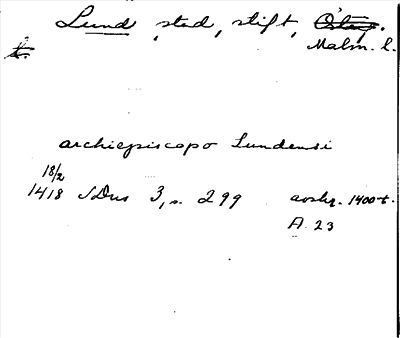 Lund, stad, stift,
Malm. l.
archiepiscopo Lundensi
18/2
1418 SDns 3, s. 299 avskr. 1400-t.
A 23